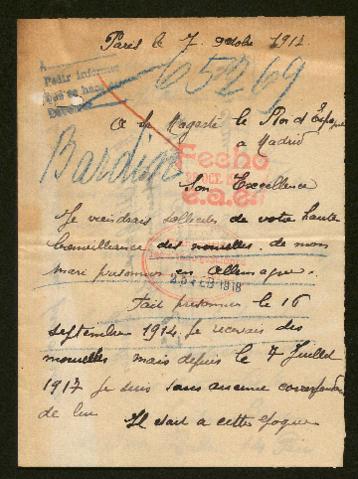 Paris le 7. octobre 1917
Pedir informes
65269
A Sa Magesté le Roi d'Espagne
a Madrid
Bardiar
Fecho
Son Excellence
Je viendrais solliciter de votre haute
bienveillance des nouvelles de mon
mari prisonnier en Allemagne.
25 FEB 1918
Fait prisonnier le 16
septembre 1914, je recevais des
nouvelles mais depuis le 7 Juillet
1917 je suis sans aucune correspondance
de lui Il etait a cette epoque